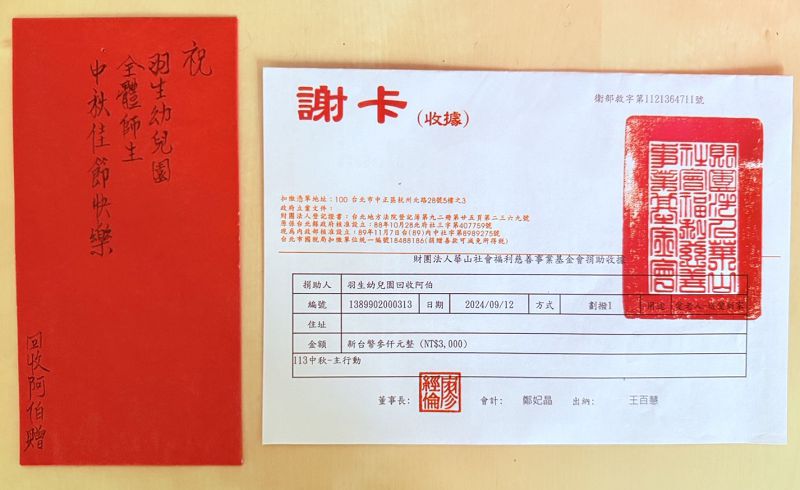 祝
羽生幼兒園
全體師生
中秋佳節快樂
回收阿伯贈
謝卡(收據)
衛部救字第1121364711號
扣繳憑單地址：100 台北市中正區杭州北路28號5樓之3
政府立案文件：
財團法人登記證書：台北地方法院登記簿第九二冊第廿五頁第二三六九號
原係台北縣政府核准設立：88年10月28北府社三字第407759號
現為內政部核准設立：89年11月7日台(89)內中社字第8989275號
台北市國稅局扣繳單位統一編號18488186(捐贈善款可減免所得稅)
財團法人華山社會福利慈善事業基金會捐助收據
捐助人 羽生幼兒園回收阿伯
編號 1389902000313 日期 2024/09/12 方式 劃撥1 用途
住址
金額 新台幣參仟元整 (NT$3,000)
113中秋-主行動
董事長： 會計： 鄭妃晶 出納： 王百慧
財團法人華山
社會福利慈善
事業基金會